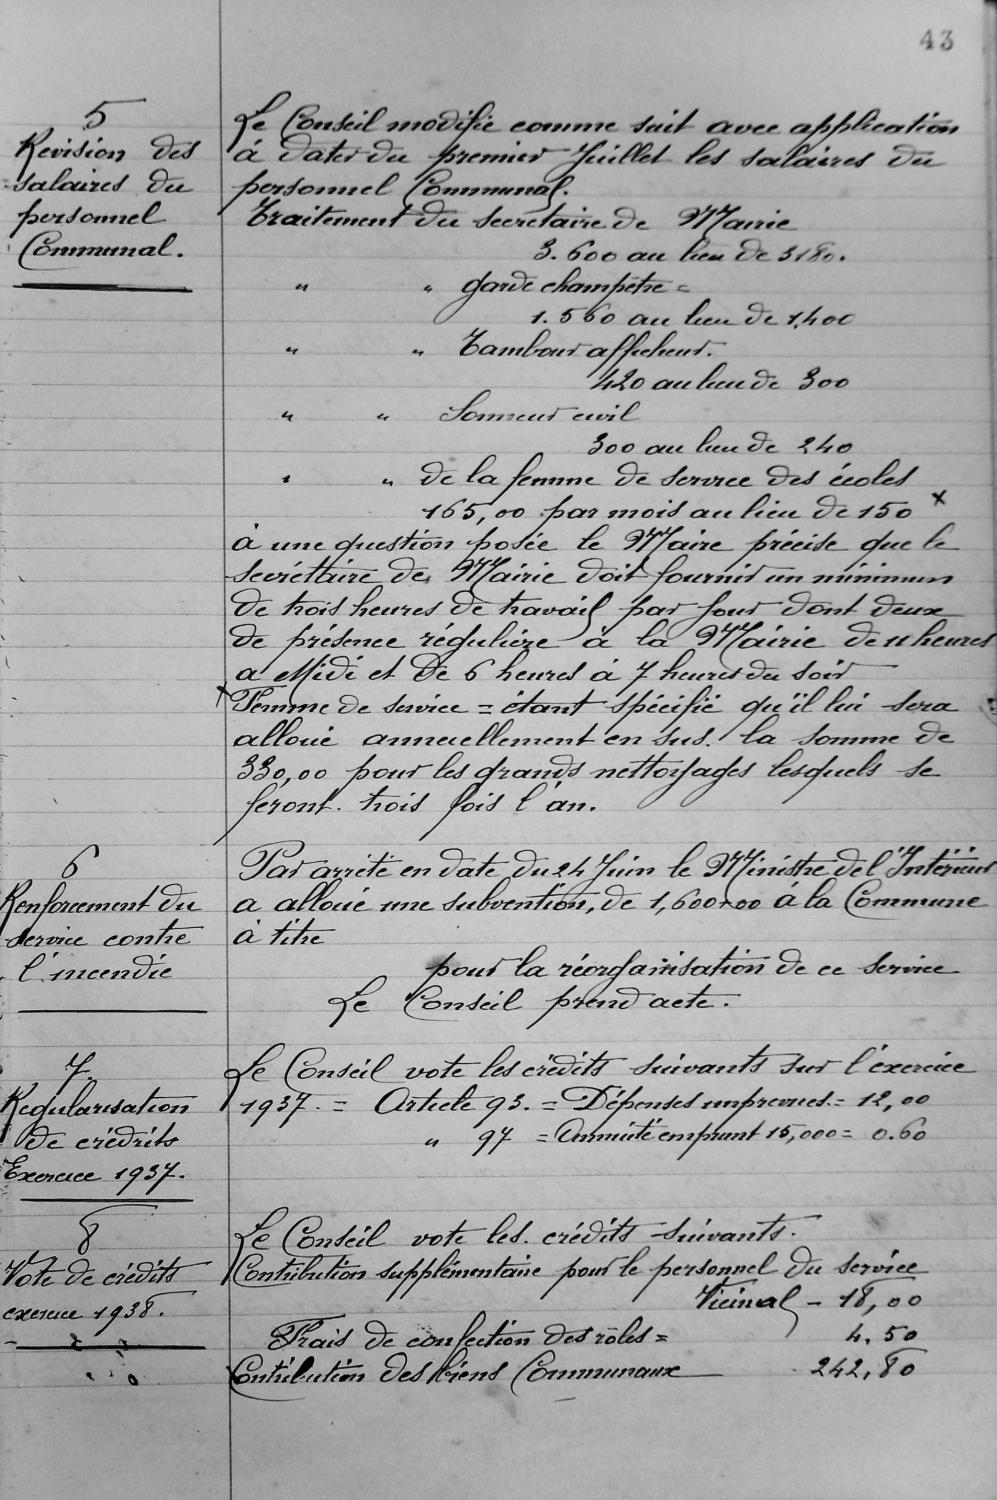 43
5
Revision des
salaires du
personnel
Communal.
Le Conseil modifie comme suit avec application
à dater du premier Juillet les salaires du
personnel Communal.
Traitement du secrétaire de Mairie
3.600 au lieu de 3180.
" " garde champêtre =
1.560 au lieu de 1,400
" " Tambour afficheur.
420 au lieu de 300
" " Sonneur civil
300 au lieu de 240
" " de la femme de service des écoles
165,00 par mois au lieu de 150 x
à une question posée le Maire précise que le
secrétaire de Mairie doit fournir un minimum
de trois heures de travail par jour dont deux
de présence régulière à la Mairie de 11 heures
a Midi et de 6 heures à 7 heures du soir
x Femme de service = étant spécifié qu'il lui sera
alloué annuellement en sus. la somme de
330,00 pour les grands nettoyages lesquels se
feront trois fois l'an.
6
Renforcement du
service contre
l'incendie
Par arrêté en date du 24 Juin le Ministre de l'Intérieur
a alloué une subvention, de 1,600.00 à la Commune
à titre
pour la réorganisation de ce service
Le Conseil prend acte.
7
Regularisation
de crédits
Exercice 1937.
Le Conseil vote les crédits suivants sur l'exercice
1937. = Article 93. = Dépenses imprevues = 12,00
" 97 = Annuité emprunt 15,000 = 0.60
8
Vote de crédits
exercice 1938.
Le Conseil vote les crédits suivants.
Contribution supplémentaire pour le personnel du service
Vicinal - 18,00
Frais de confection des rôles = 4.50
Contribution des biens Communaux 242,80